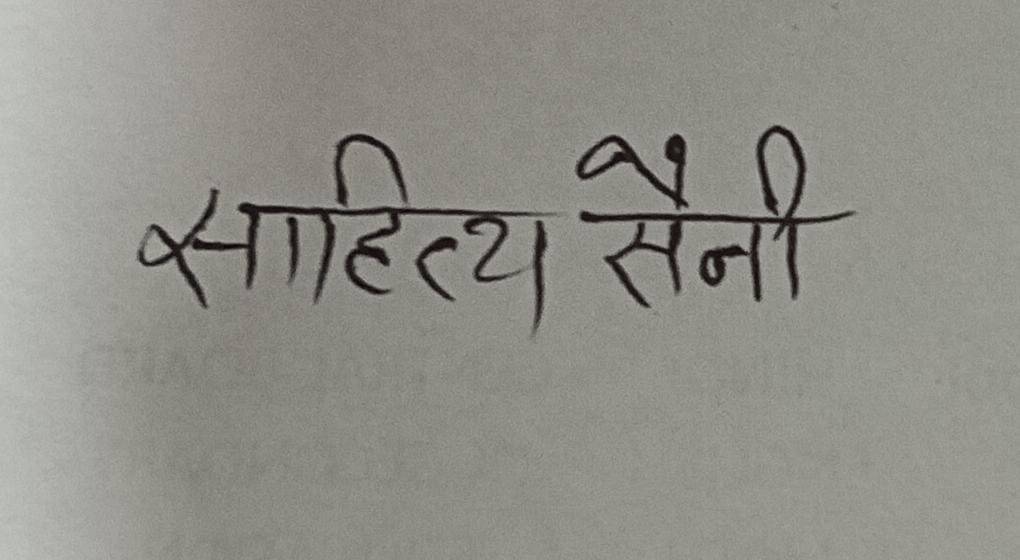 साहित्य सैनी